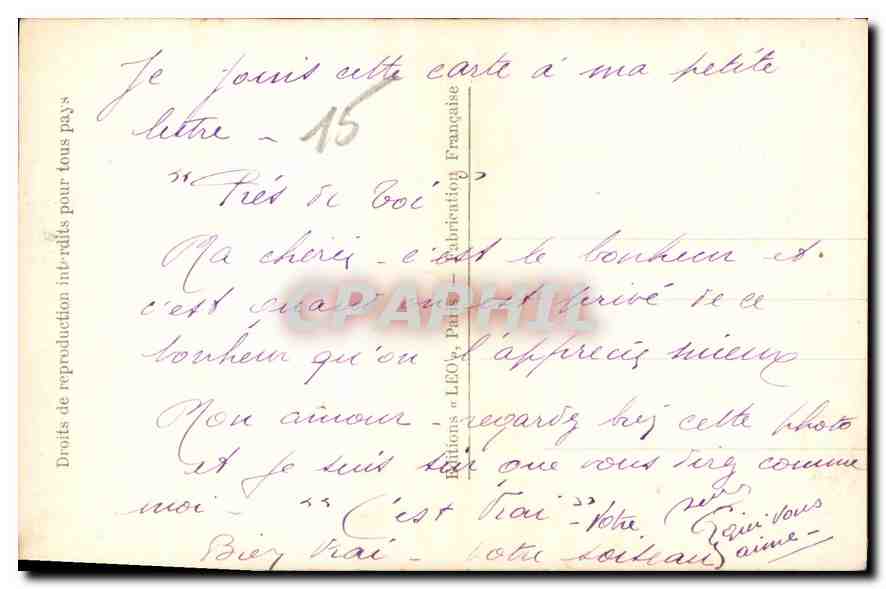 Je joins cette carte à ma petite
lettre -
15
"Près de toi"
Ma chérie - c'est le bonheur et
c'est quand on est privé de ce
bonheur qu'on l'apprécie mieux
Mon amour - regardez bien cette photo
et je suis sûr que vous direz comme
moi - "C'est Vrai" - Votre
qui vous
aime -
Bien Vrai - Votre
Droits de reproduction interdits pour tous pays
Editions « LEO », Paris - Fabrication Française
CPAPHIL